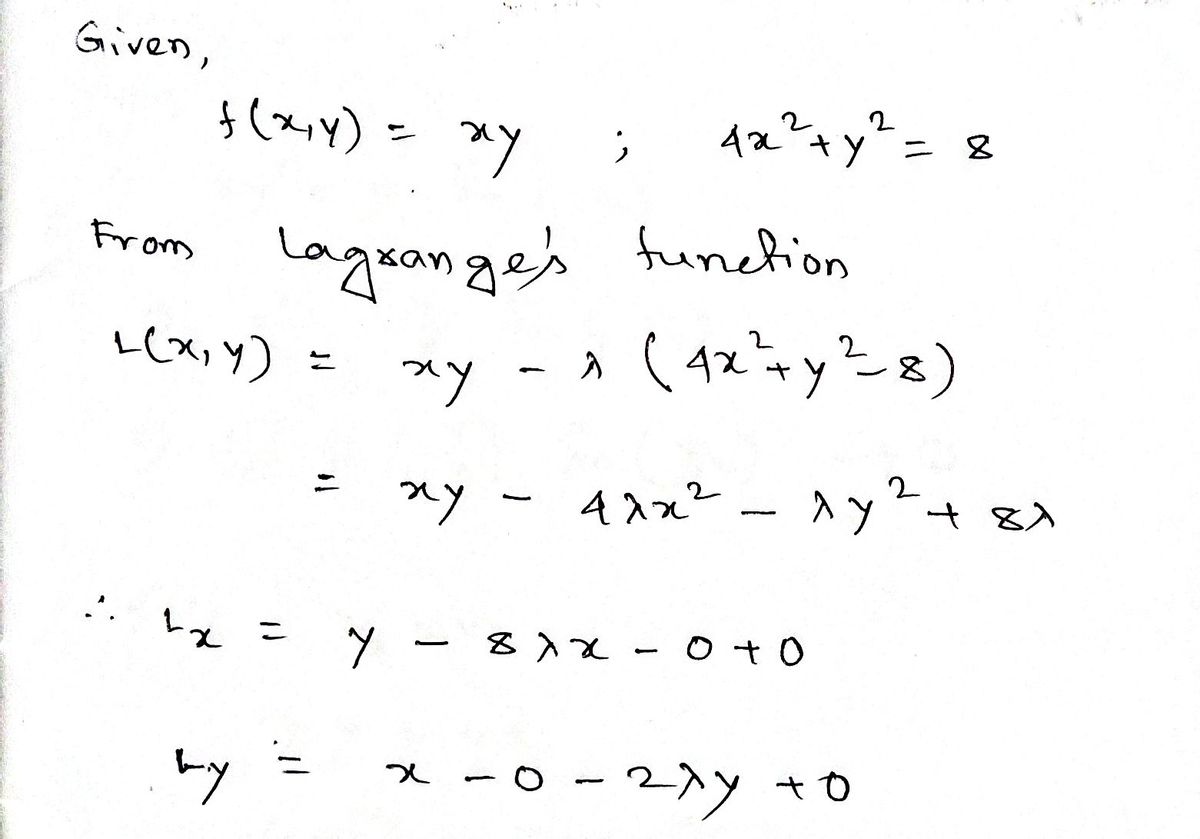 Given,
f(x,y) = xy ; 4x²+y² = 8
From Lagrange's function
L(x,y) = xy - λ (4x²+y²-8)
= xy - 4λx² - λy² + 8λ
∴ Lx = y - 8λx - 0+0
Ly = x - 0 - 2λy + 0